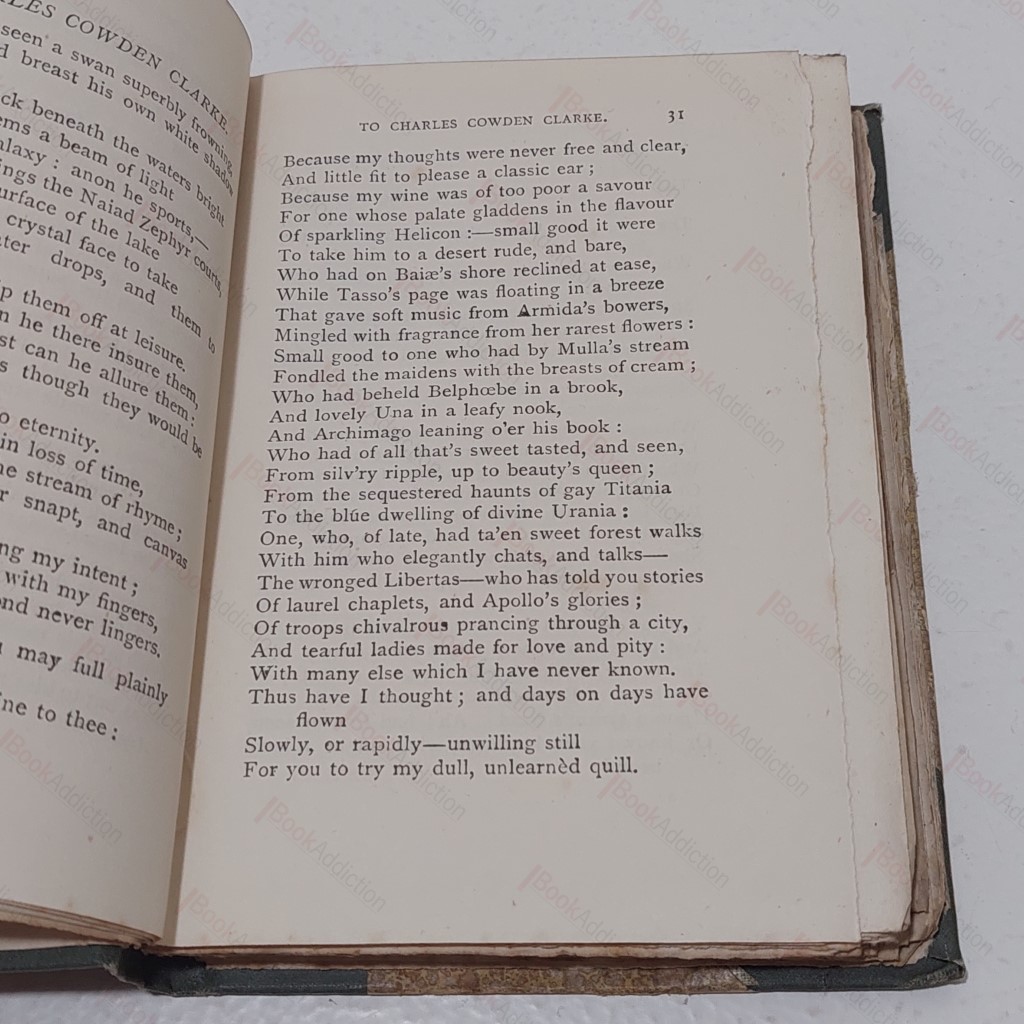 LES COWDEN CLARKE.
seen a swan superbly frowning,
breast his own white shadow
beneath the waters bright
a beam of light
: anon he sports,—
the Naiad Zephyr courts,
of the lake
crystal face to take
drops, and them to
them off at leisure.
he there insure them,
can he allure them:
though they would be
eternity.
in loss of time,
stream of rhyme;
snapt, and canvas
my intent;
with my fingers,
and never lingers.
may full plainly
to thee:
TO CHARLES COWDEN CLARKE. 31
Because my thoughts were never free and clear,
And little fit to please a classic ear;
Because my wine was of too poor a savour
For one whose palate gladdens in the flavour
Of sparkling Helicon:—small good it were
To take him to a desert rude, and bare,
Who had on Baiæ's shore reclined at ease,
While Tasso's page was floating in a breeze
That gave soft music from Armida's bowers,
Mingled with fragrance from her rarest flowers:
Small good to one who had by Mulla's stream
Fondled the maidens with the breasts of cream;
Who had beheld Belphœbe in a brook,
And lovely Una in a leafy nook,
And Archimago leaning o'er his book:
Who had of all that's sweet tasted, and seen,
From silv'ry ripple, up to beauty's queen;
From the sequestered haunts of gay Titania
To the blúe dwelling of divine Urania:
One, who, of late, had ta'en sweet forest walks
With him who elegantly chats, and talks—
The wronged Libertas—who has told you stories
Of laurel chaplets, and Apollo's glories;
Of troops chivalrous prancing through a city,
And tearful ladies made for love and pity:
With many else which I have never known.
Thus have I thought; and days on days have
flown
Slowly, or rapidly—unwilling still
For you to try my dull, unlearnèd quill.
BookAddiction